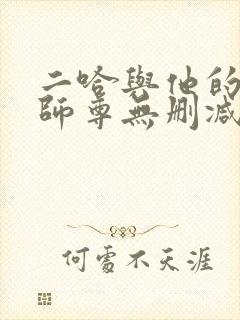 二哈與他的
師尊無刪減
何處不天涯